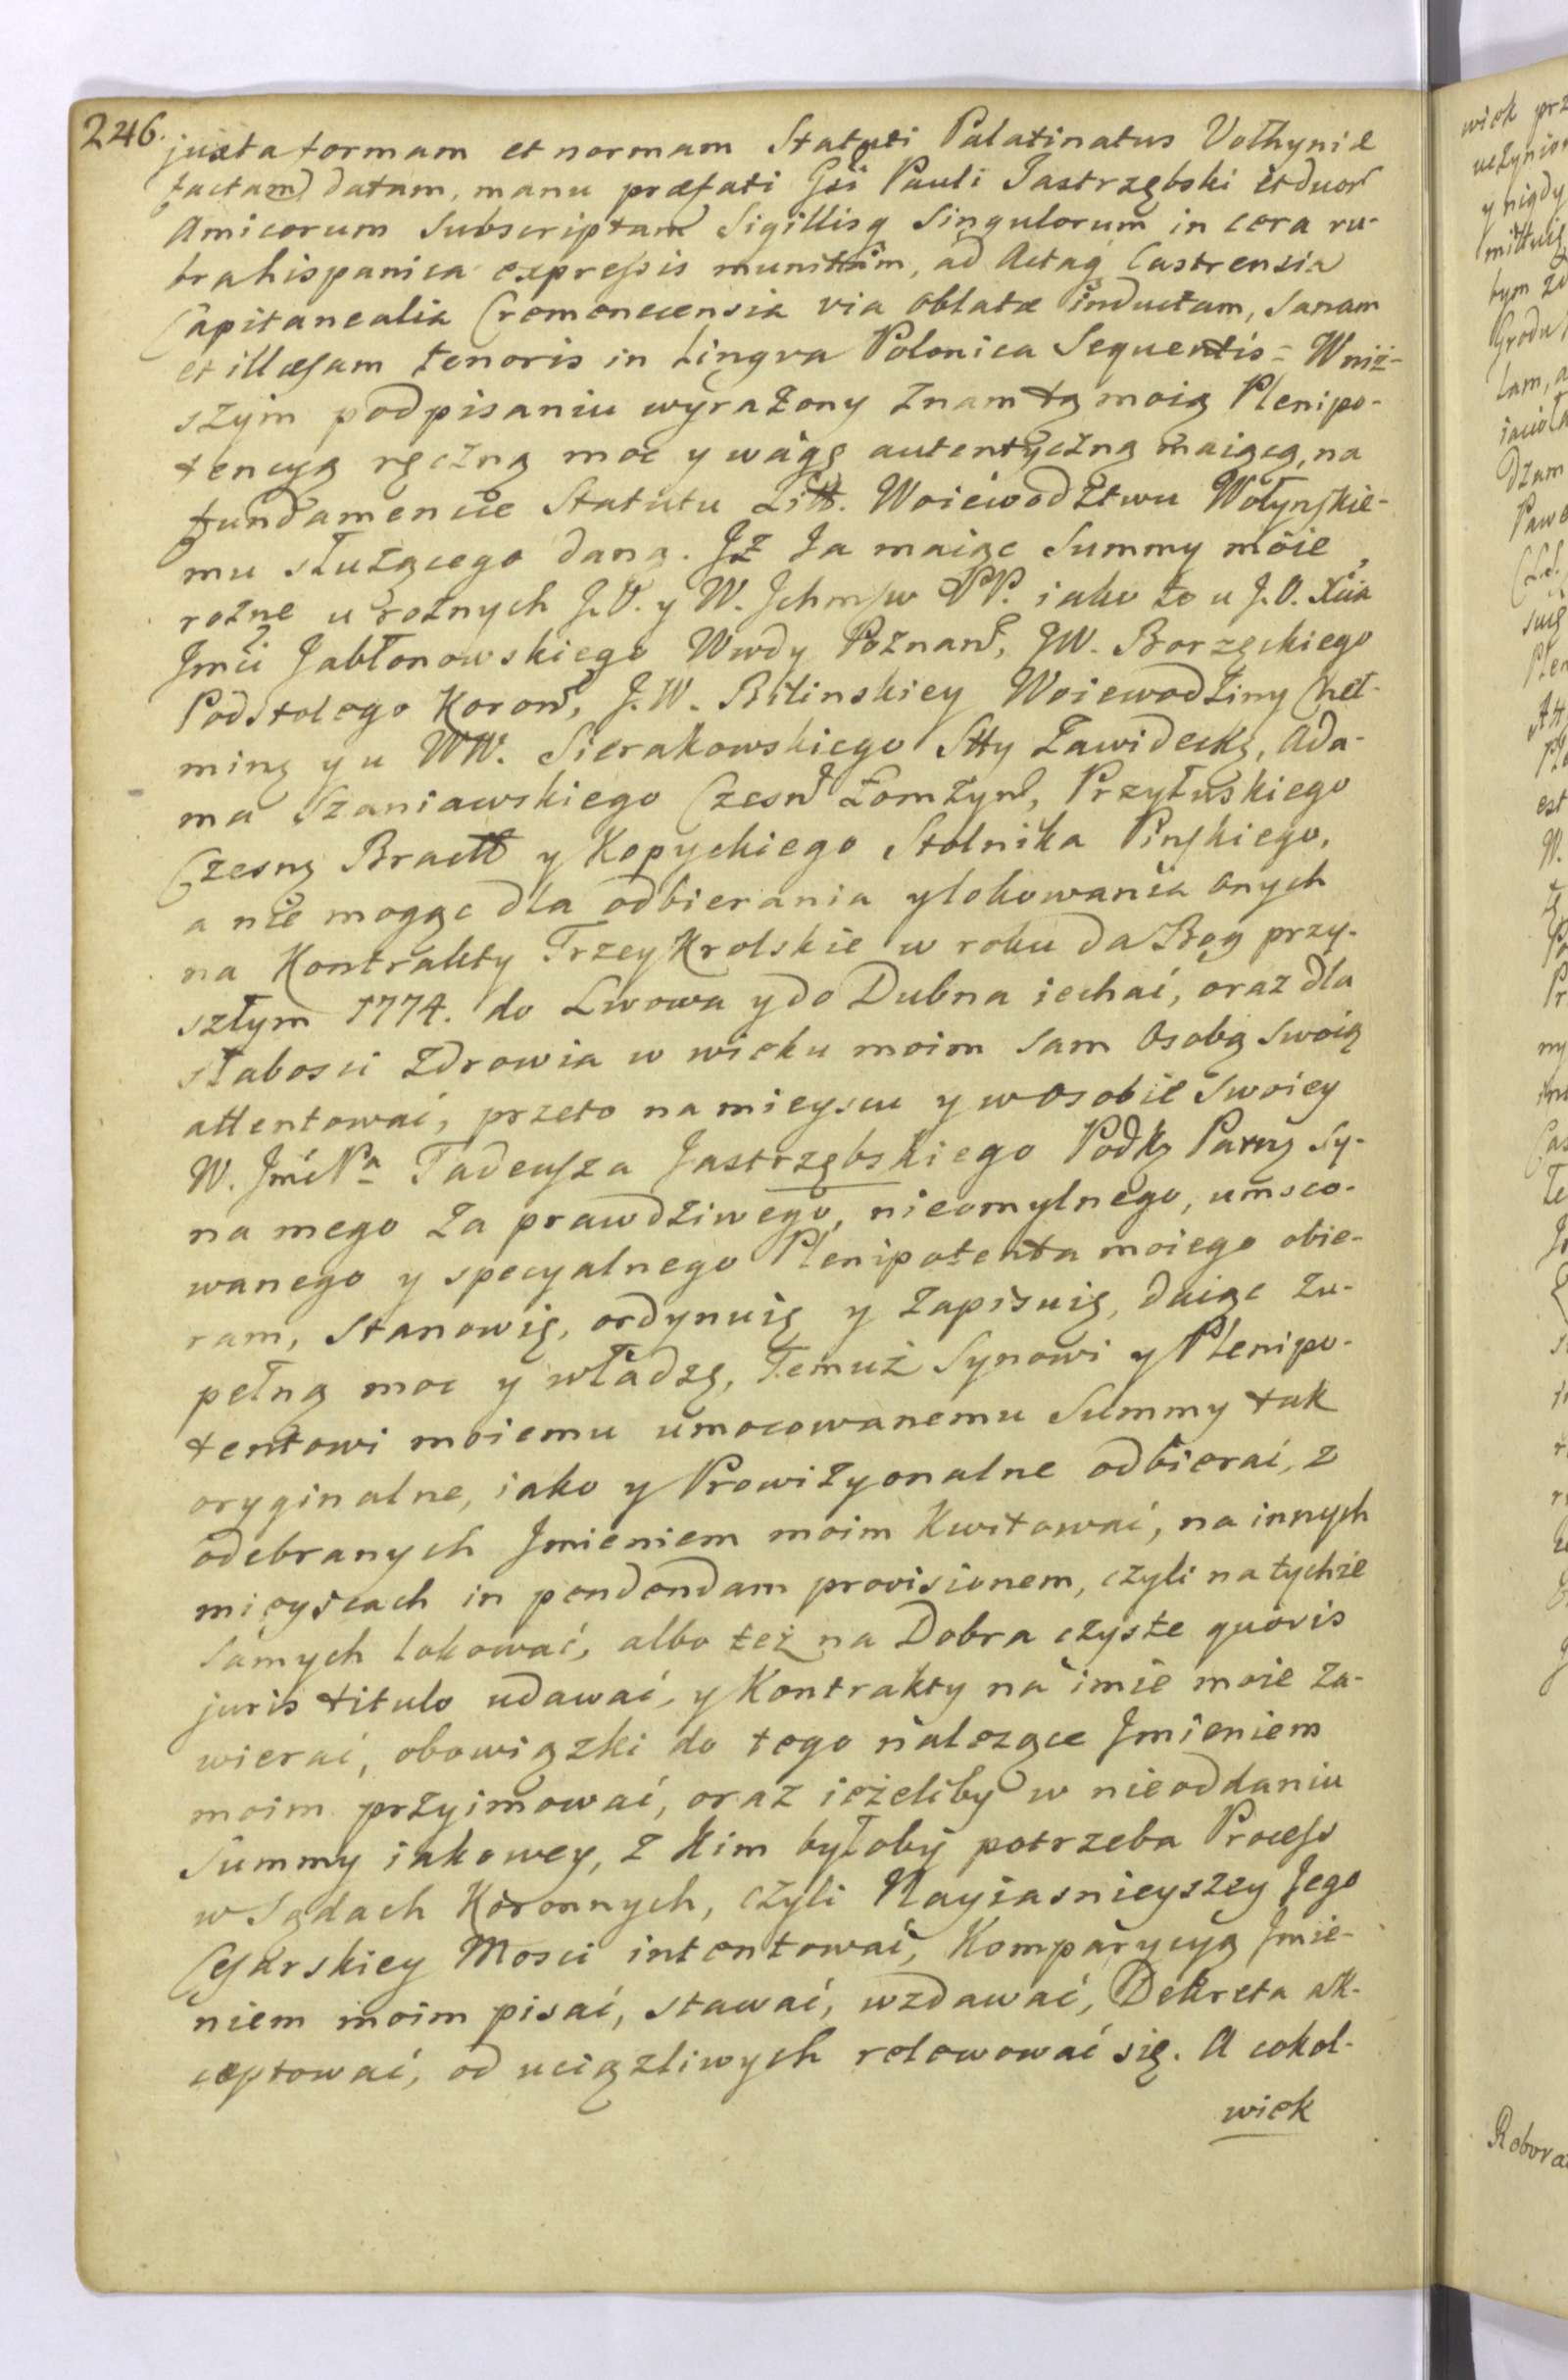 246.
juxta formam et normam Statuti Palatinatus Volhyniæ
factam datam, manu præfati Gsi Pauli Jastrzębski et duor
Amicorum Subscriptam Sigillisq Singulorum in cera ru-
bra hispanica expressis munitam, ad Actaq Castrensia
Capitanealia Cremenecensia via oblatæ inductam, sanam
et illæsam tenoris in Lingva Polonica Sequentis = W niż-
szym podpisaniu wyrażony znam tą moią Plenipo-
tencyą ręczną moc y wagę autentyczną maiącą, na
fundamencie Statutu Litt. Woiewodztwu Wołynskie-
mu służącego daną. Jż Ja maiąc Summy moie
rożne u rożnych J.O. y W. Jchmsw PP. iako to u J.O. Xcia
Jmci Jabłonowskiego Wwdy Poznan, JW. Borzęckiego
Podstolego Koron, J.W. Bilinskiey Woiewodziny Cheł-
miną y u WW. Sierakowskiego Stty Zawidecką, Ada-
ma Szaniawskiego Czesn Łomżyn, Przyłuskiego
Czesną Bracł y Kopyckiego Stolnika Pinskiego,
a nie mogąc dla odbierania y lokowania onych
na Kontrakty Trzey Krolskie w roku da Bog przy-
szłym 1774. do Lwowa y do Dubna iechać, oraz dla
słabosci zdrowia w wieku moim sam Osobą swoią
attentować, przeto na mieyscu y w osobie swoiey
W. Jmć Pa Tadeusza Jastrzębskiego Podką Parną Sy-
na mego za prawdziwego, nieomylnego, umoco-
wanego y specyalnego Plenipotenta moiego obie-
ram, Stanowię, ordynuię y zapisuię, daiąc zu-
pełną moc y władzę, Temuż Synowi y Plenipo-
tentowi moiemu umocowanemu Summy tak
oryginalne, iako y Prowizyonalne odbierać, z
odebranych Jmieniem moim Kwitować, na innych
mieyscach in pendendam provisionem, czyli na tychże
samych lokować, albo też na Dobra czyste quovis
juris titulo udawać, y Kontrakty na imie moie za-
wierać, obowiązki do tego należące Jmieniem
moim przyimować, oraz ieżeliby w nieoddaniu
Summy iakowey, z kim byłoby potrzeba Process
w Sądach Koronnych, czyli Nayiasnieyszey Jego
Cesarskiey Mosci intentować, Komparycyą Jmie-
niem moim pisać, stawać, wzdawać, Dekreta ak-
ceptować, od uciązliwych relewować się. A cokol-
wiek